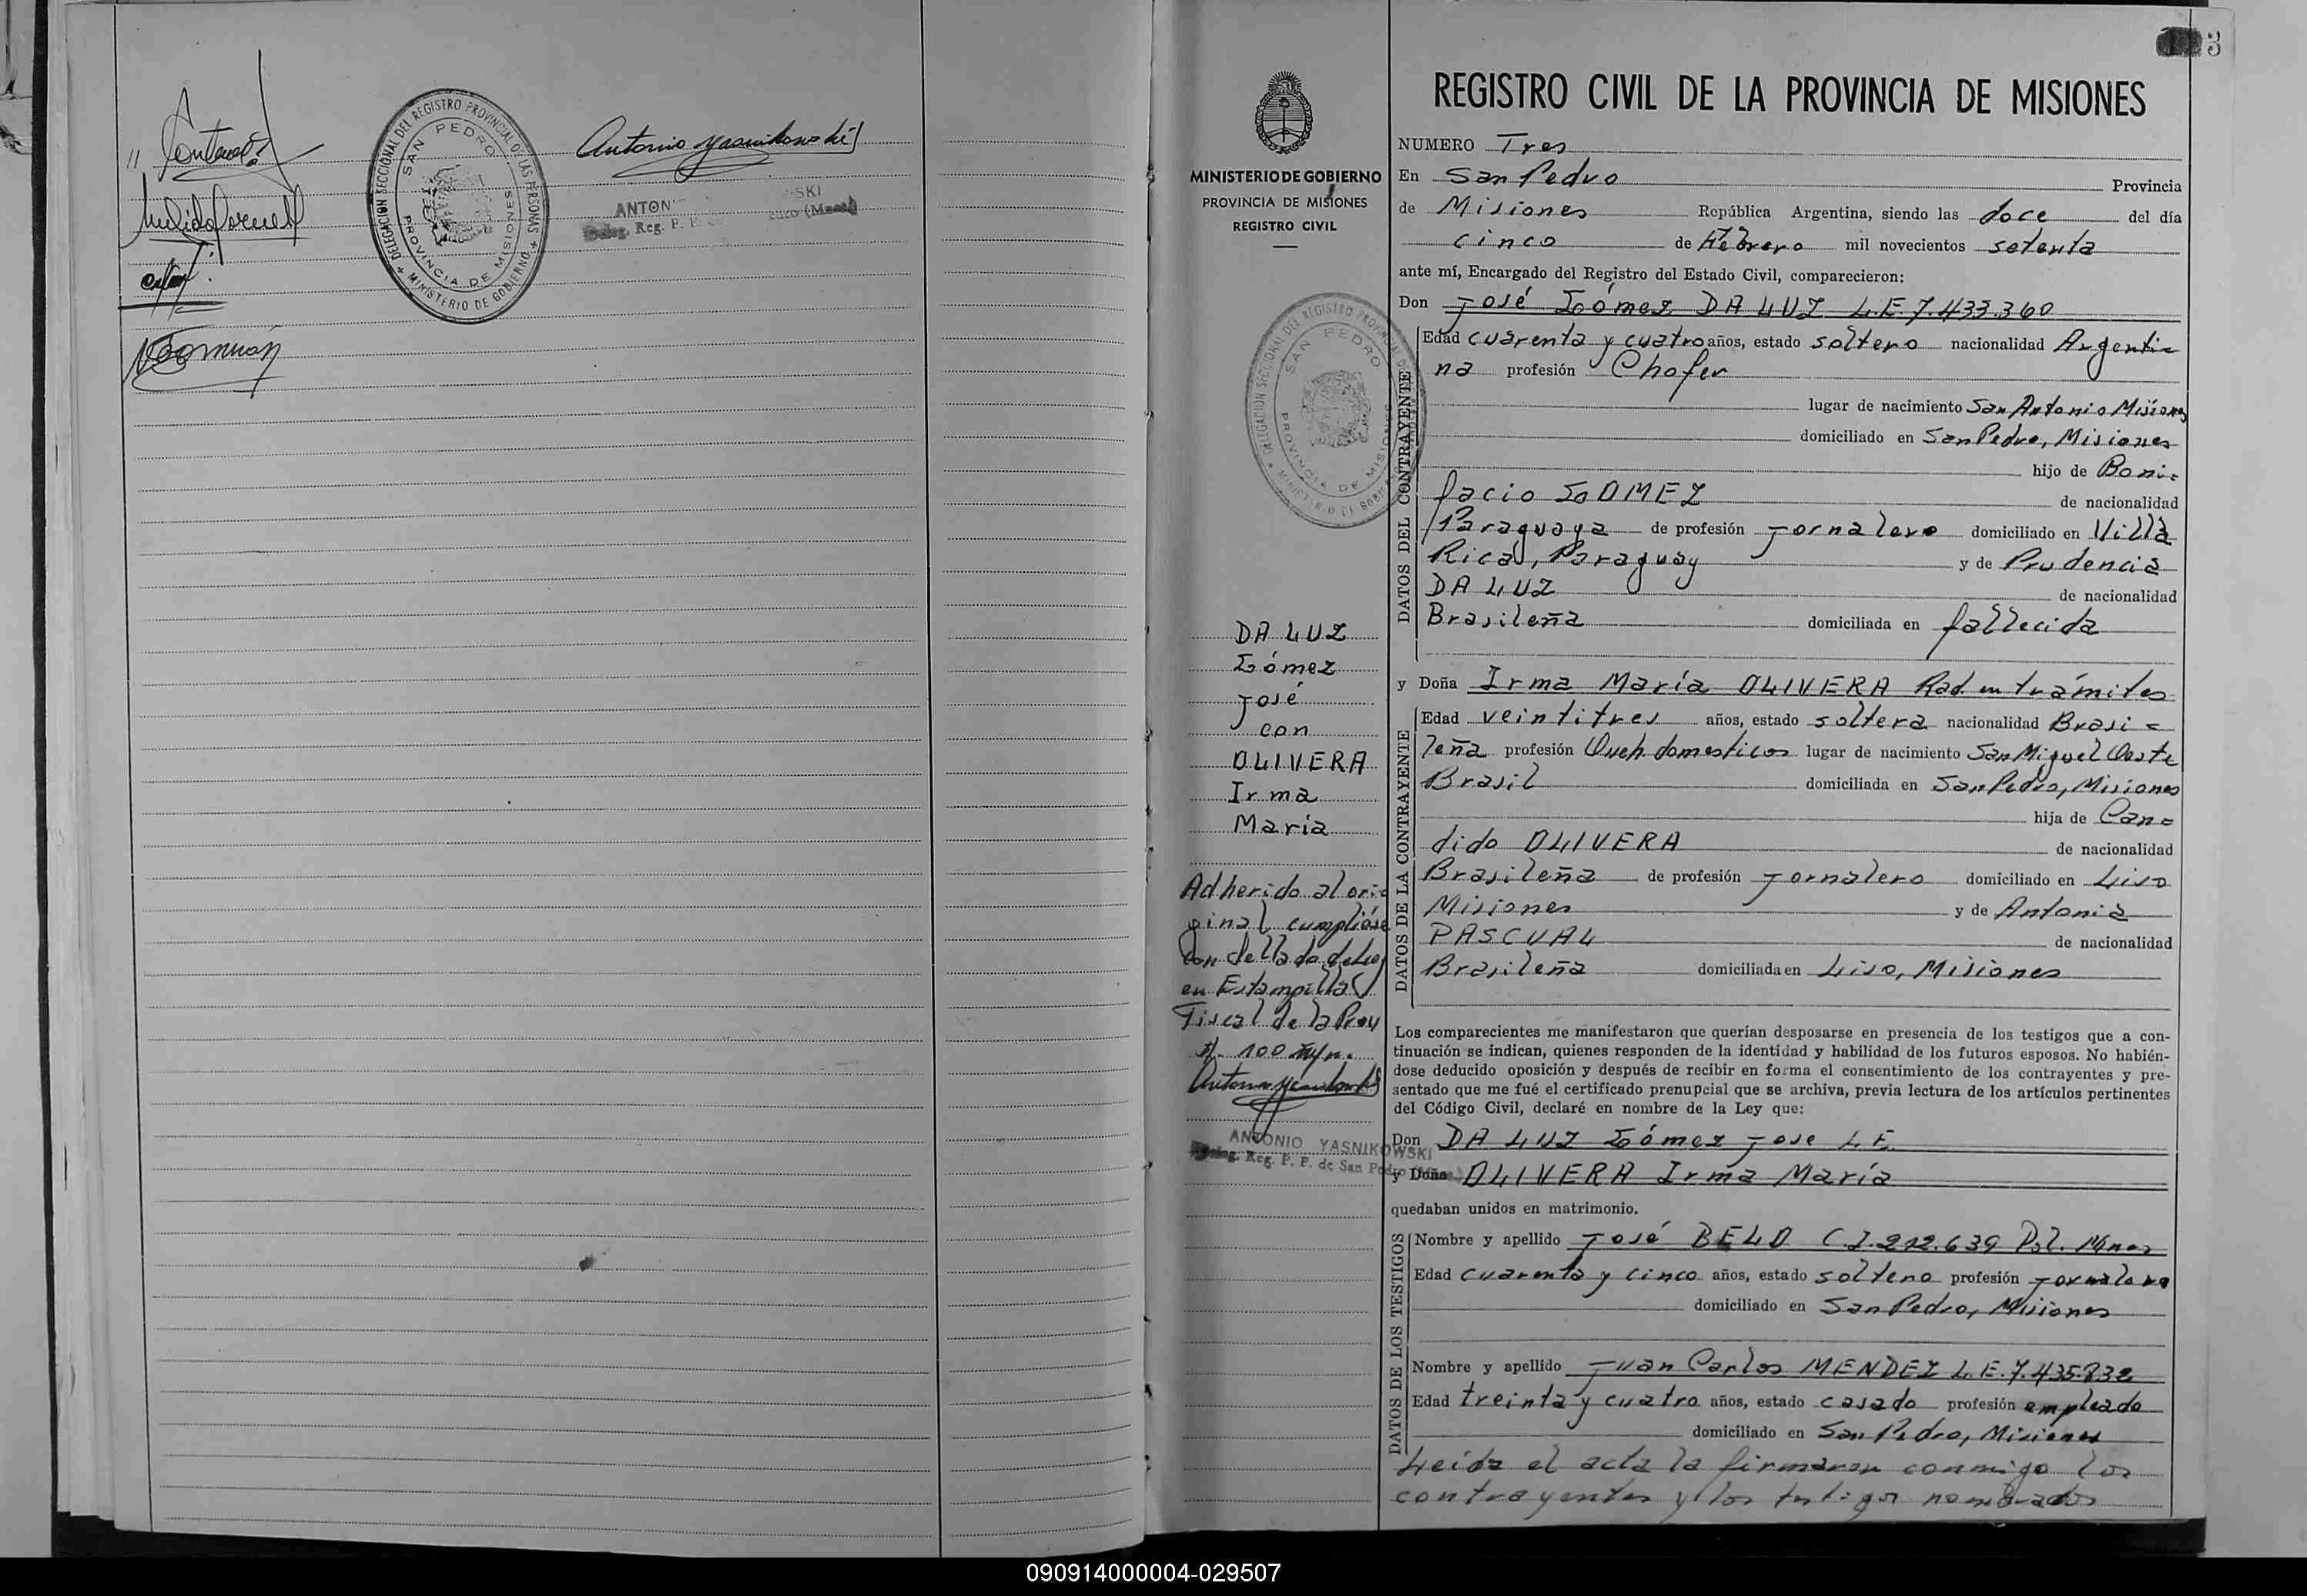 DELEGACION SECCIONAL DEL REGISTRO PROVINCIAL DE LAS PERSONAS
SAN PEDRO
PROVINCIA DE MISIONES
MINISTERIO DE GOBIERNO
Antonio Yasnikowski
ANTON SKI
Deleg. Reg. P. P.
3
MINISTERIO DE GOBIERNO
PROVINCIA DE MISIONES
REGISTRO CIVIL
DELEGACION SECCIONAL DEL REGISTRO PROVINCIAL
SAN PEDRO
PROVINCIA DE MISIONES
MINISTERIO DE GOBIERNO
DA LUZ
Gómez
José
con
OLIVERA
Irma
María
Adherido al ori=
ginal cumpliose
con sellado de Ley
en Estampilla
Fiscal de la Prov
$. 100 m/n.
Antonio Yasnikowski
ANTONIO YASNIKOWSKI
Deleg. Reg. P. P. de San Pedro
REGISTRO CIVIL DE LA PROVINCIA DE MISIONES
NUMERO Tres
En San Pedro Provincia
de Misiones República Argentina, siendo las doce del día
cinco de Febrero mil novecientos setenta
ante mí, Encargado del Registro del Estado Civil, comparecieron:
Don José Gómez DA LUZ L.E. 7.433.360
DATOS DEL CONTRAYENTE
Edad cuarenta y cuatro años, estado soltero nacionalidad Argenti=
na profesión Chofer
lugar de nacimiento San Antonio Misiones
domiciliado en San Pedro, Misiones
hijo de Boni=
facio GOMEZ de nacionalidad
Paraguaya de profesión Jornalero domiciliado en Villa
Rica, Paraguay y de Prudencia
DA LUZ de nacionalidad
Brasileña domiciliada en fallecida
y Doña Irma María OLIVERA Rad. en trámites
DATOS DE LA CONTRAYENTE
Edad veintitres años, estado soltera nacionalidad Brasi=
leña profesión Queh domesticos lugar de nacimiento San Miguel Oeste
Brasil domiciliada en San Pedro, Misiones
hija de Can=
dido OLIVERA de nacionalidad
Brasileña de profesión Jornalero domiciliado en Liso
Misiones y de Antonia
PASCUAL de nacionalidad
Brasileña domiciliada en Liso, Misiones
Los comparecientes me manifestaron que querían desposarse en presencia de los testigos que a con-
tinuación se indican, quienes responden de la identidad y habilidad de los futuros esposos. No habién-
dose deducido oposición y después de recibir en forma el consentimiento de los contrayentes y pre-
sentado que me fué el certificado prenupcial que se archiva, previa lectura de los artículos pertinentes
del Código Civil, declaré en nombre de la Ley que:
Don DA LUZ Gómez Jose L.E.
y Doña OLIVERA Irma María
quedaban unidos en matrimonio.
DATOS DE LOS TESTIGOS
Nombre y apellido José BELO C.I. 212.639 Pol. Mnes
Edad cuarenta y cinco años, estado soltero profesión Jornalero
domiciliado en San Pedro, Misiones
Nombre y apellido Juan Carlos MENDEZ L.E. 7.435.832
Edad treinta y cuatro años, estado casado profesión empleado
domiciliado en San Pedro, Misiones
Leída el acta la firmaron conmigo los
contrayentes y los testigos nombrados
090914000004-029507